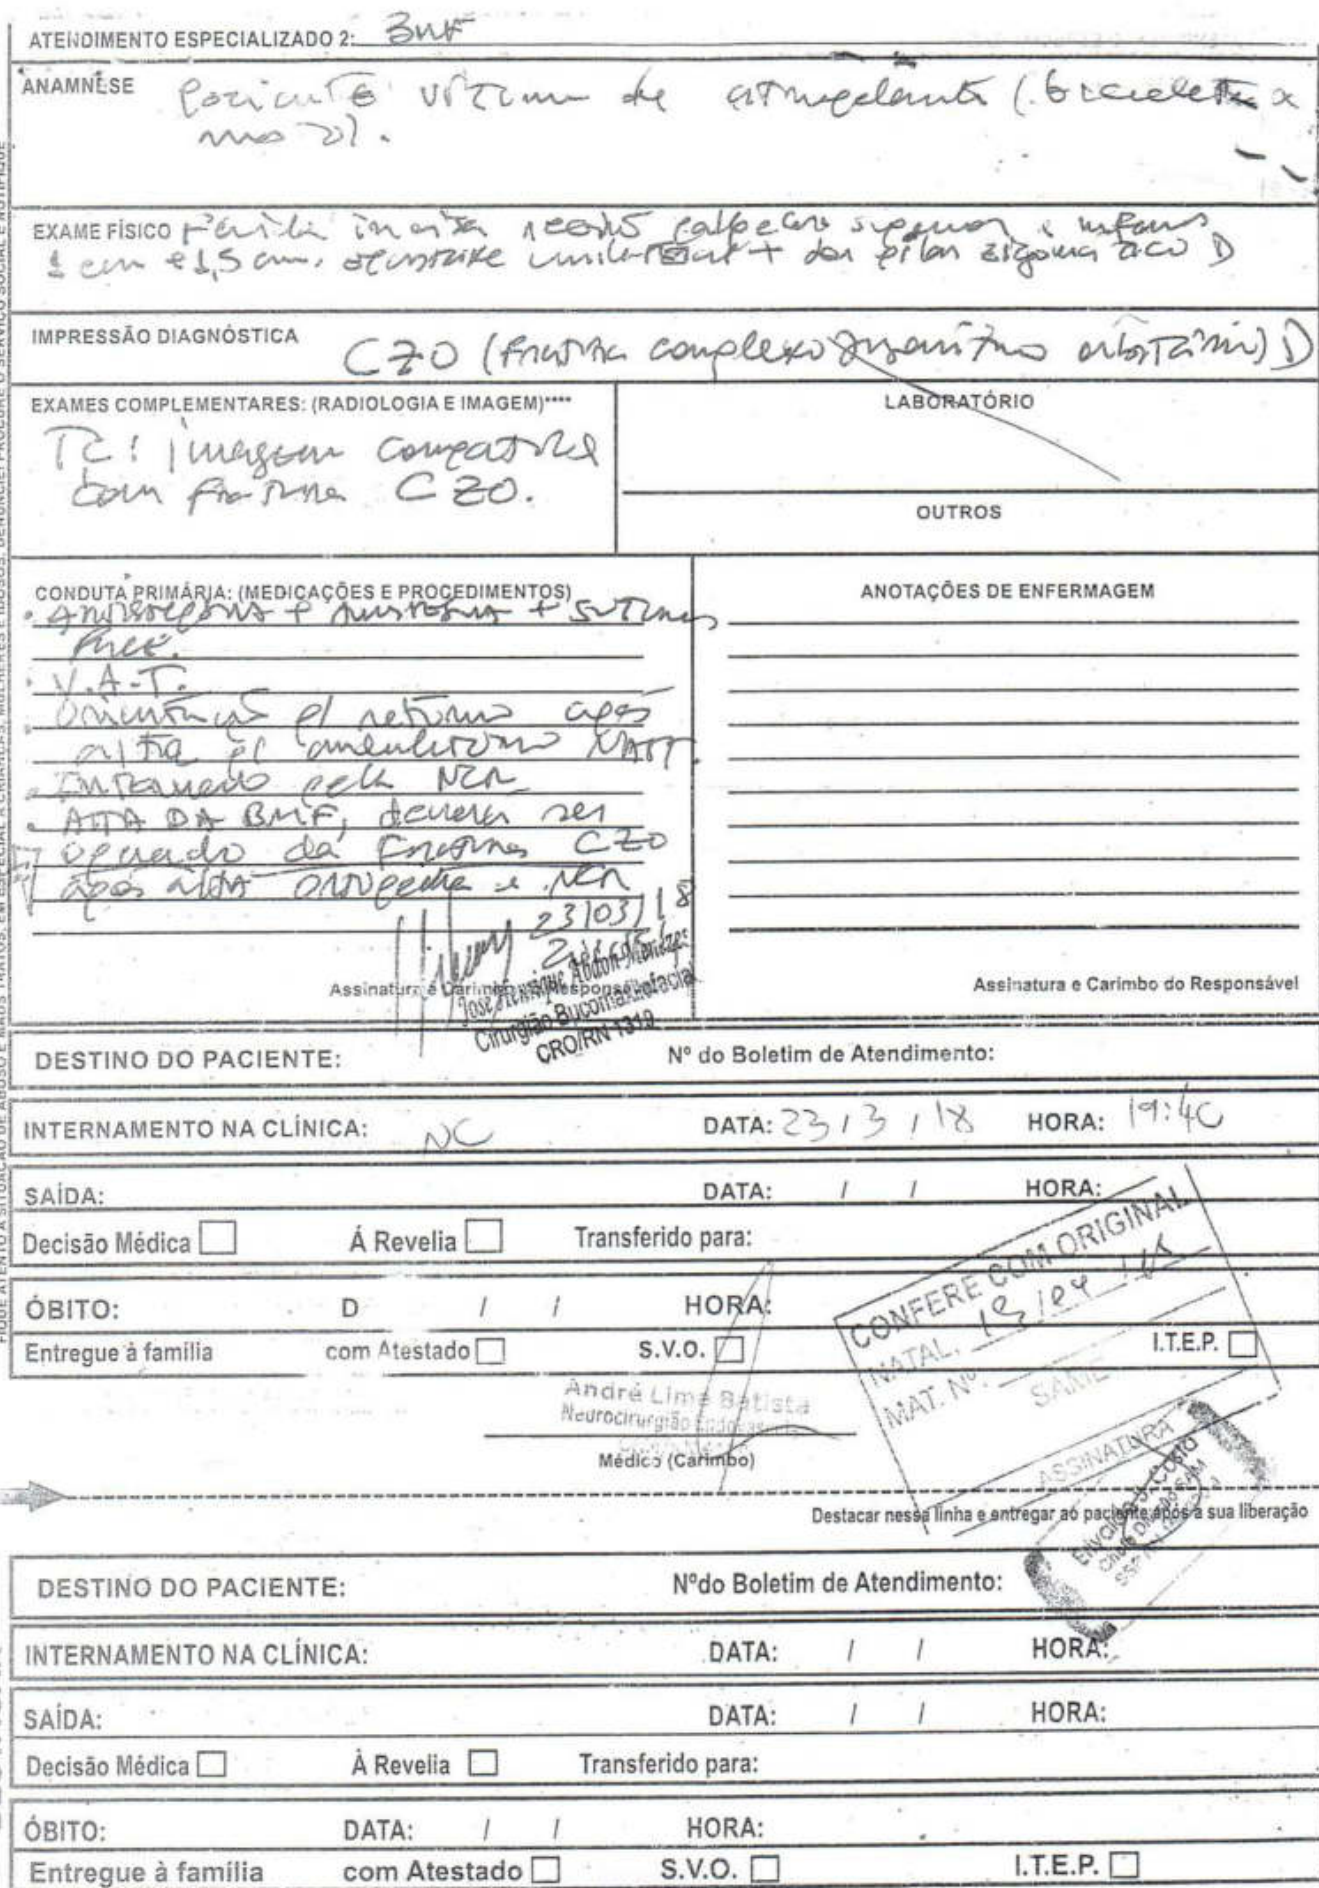 ATENDIMENTO ESPECIALIZADO 2: BMF
ANAMNESE Paciente vítima de atropelamento (bicicleta x
moto).
EXAME FÍSICO Ferida incisa região palpebra superior e inferior
1 cm e 1,5 cm. unilateral + dor pilar zigomatico D
IMPRESSÃO DIAGNÓSTICA CZO (fratura complexo orbitário) D
EXAMES COMPLEMENTARES: (RADIOLOGIA E IMAGEM)****
TC: Imagem compatível
com fratura CZO.
LABORATÓRIO
OUTROS
CONDUTA PRIMÁRIA: (MEDICAÇÕES E PROCEDIMENTOS)
. Antissepsia + anestesia + suturas
face.
. V.A.T.
Orientação p/ retorno após
alta p/ ambulatório
. Internado pela NCR
. ALTA DA BMF, deverá ser
operado da fratura CZO
após alta ortopedia e NCR
23/03/18
Assinatura e Carimbo do Responsável
José Henrique Abdon Menezes
Cirurgião Bucomaxilofacial
CRO/RN 1319
ANOTAÇÕES DE ENFERMAGEM
Assinatura e Carimbo do Responsável
DESTINO DO PACIENTE: Nº do Boletim de Atendimento:
INTERNAMENTO NA CLÍNICA: NC DATA: 23/3/18 HORA: 19:40
SAÍDA: DATA: / / HORA:
Decisão Médica Á Revelia Transferido para:
ÓBITO: D / / HORA:
Entregue à família com Atestado S.V.O. I.T.E.P.
CONFERE COM ORIGINAL
NATAL,
MAT. Nº
SAME
ASSINATURA
André Lima Batista
Neurocirurgião
Médico (Carimbo)
Destacar nessa linha e entregar ao paciente após a sua liberação
DESTINO DO PACIENTE: Nºdo Boletim de Atendimento:
INTERNAMENTO NA CLÍNICA: DATA: / / HORA:
SAÍDA: DATA: / / HORA:
Decisão Médica À Revelia Transferido para:
ÓBITO: DATA: / / HORA:
Entregue à família com Atestado S.V.O. I.T.E.P.